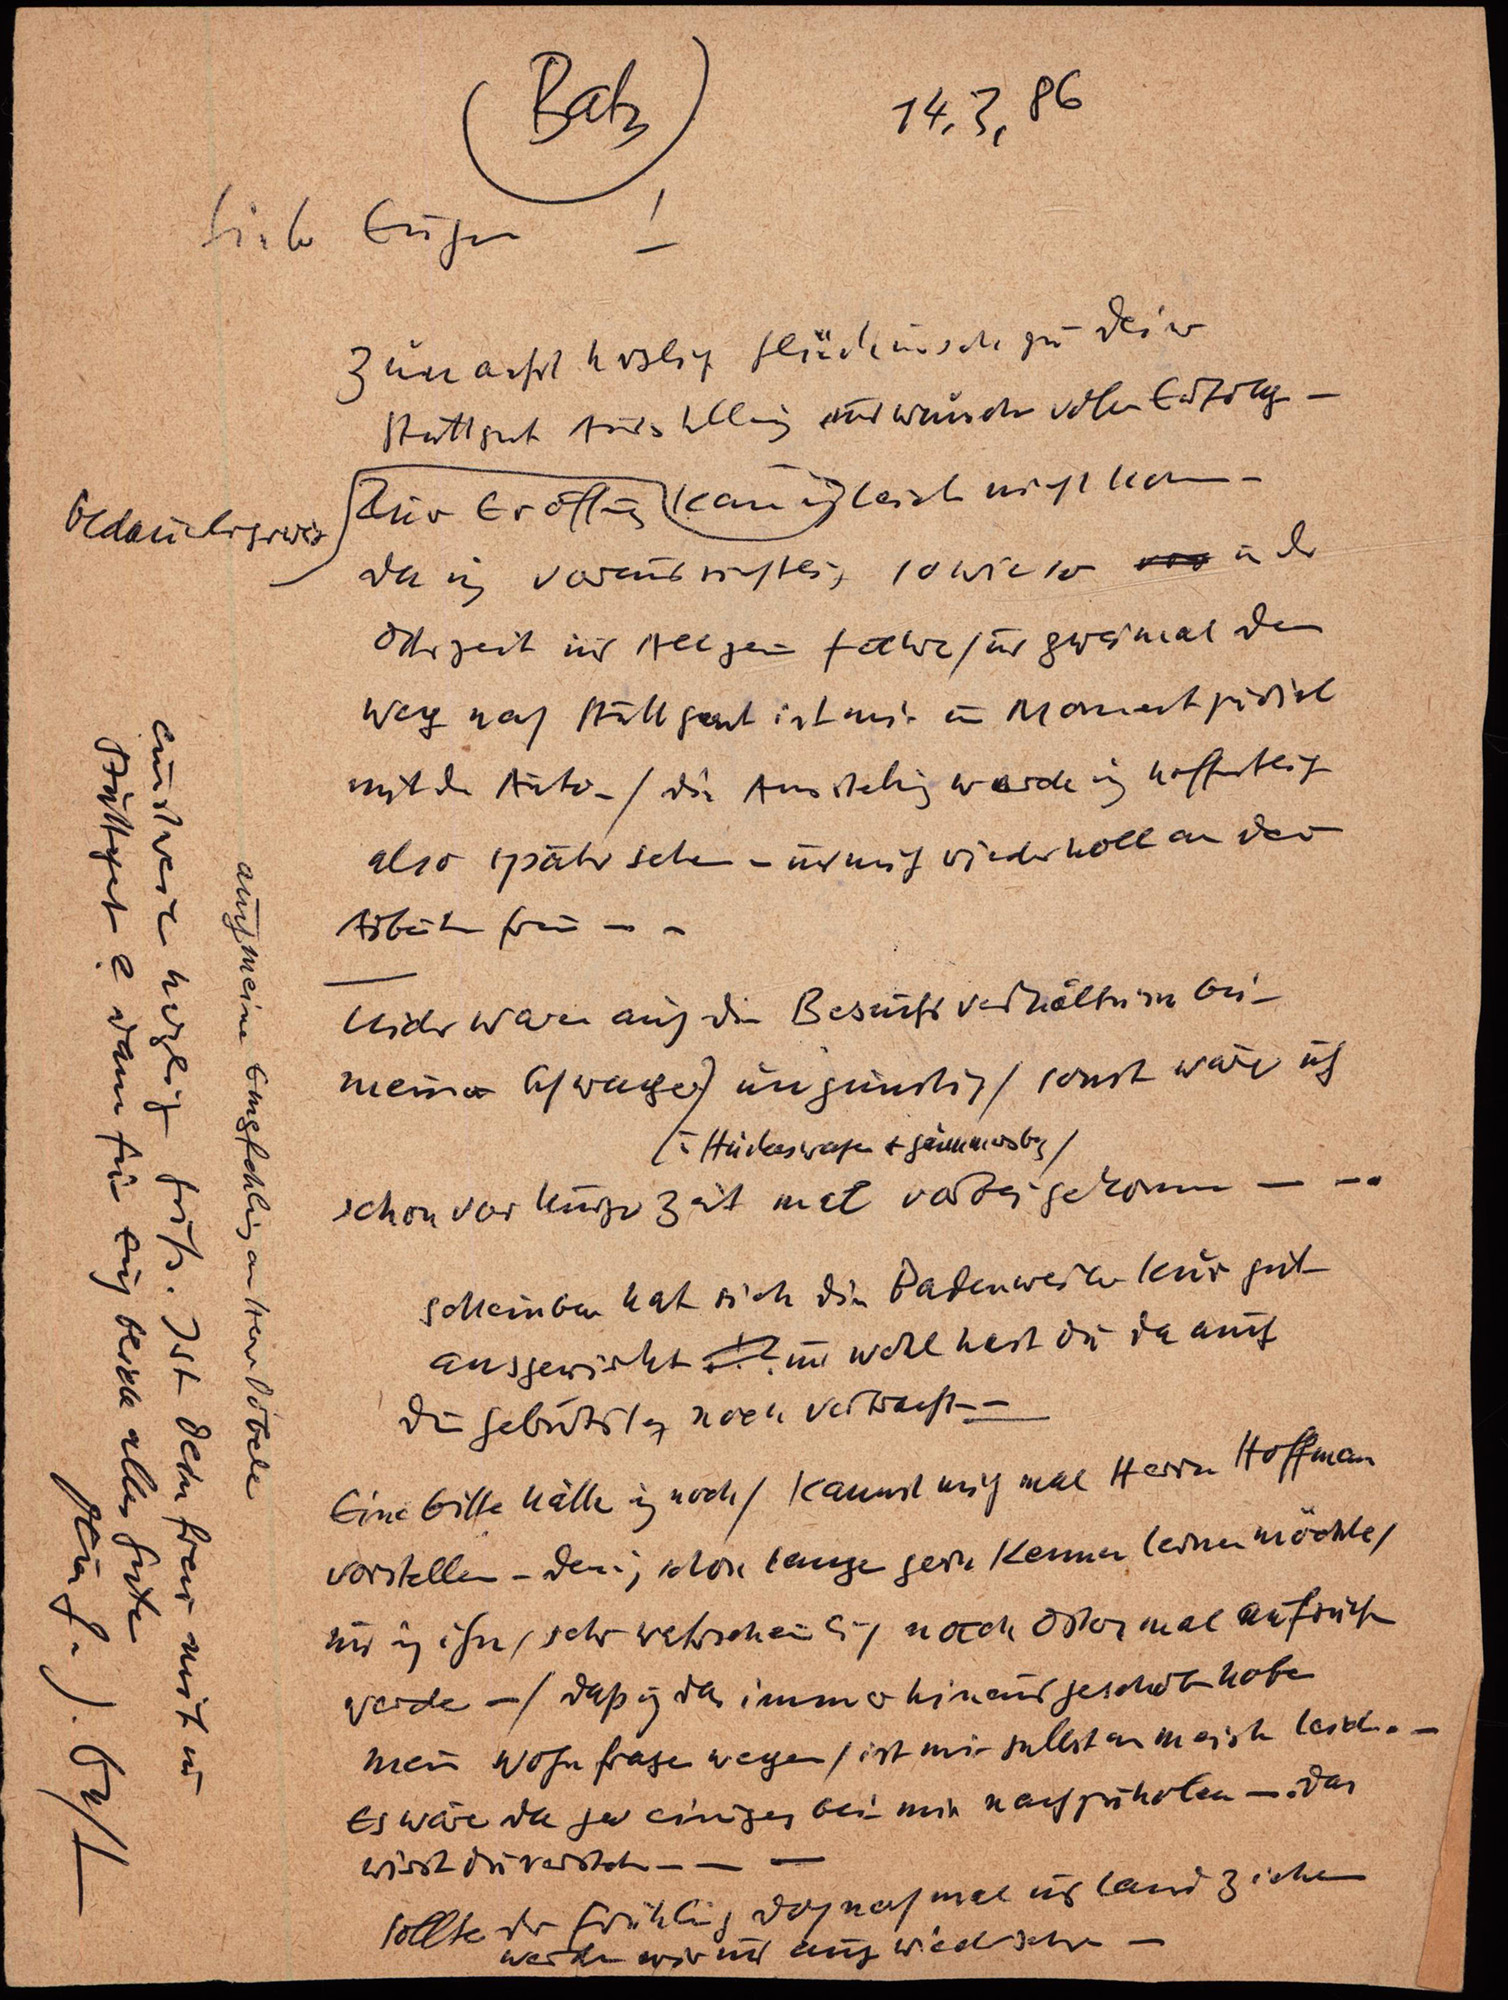 (Batz)
14.3.86
Liebe Eugen !
Zunächst herzlich Glückwunsch zu deiner
Stuttgart Ausstellung und wünsche vollen Erfolg –
bedauerlicherweis
Zur Eröffnung kann ich leich nicht kommen –
da ich voraussichtlich sowieso in der
Osterzeit ins Allgäu fahre / und zweimal den
Weg nach Stuttgart ist mir im Moment zuviel
mit dem Auto – / die Ausstellung werde ich hoffentlich
also später sehen – und mich wiederholt an den
Arbeiten freuen – –
Leider waren auch die Besuchsverhältnisse bei
meiner Schwager ungünstig / sonst wäre ich
(in Hückeswagen + Gummersbg /
schon vor kurzer Zeit mal vorbei gekommen – – –
Scheinbar hat sich die Badenweiler Kur gut
ausgewirkt und wohl hast du da auch
die Geburtstag noch verbracht – –
Eine Bitte hätte ich noch / kannst mich mal Herrn Hoffman
vorstellen – den ich schon lange gern kennen lernen möchte /
und ich ihn / sehr wahrscheinlich nach Ostern mal aufsuchen
werde – / daß ich das immer hinausgeschoben habe
mein Wohnfrage wegen / ist mir selbst am meisten leid. –
Es wäre da ja einiges bei mir nachzuholen – das
wirst du verstehn – – –
Sollte der Frühling doch noch mal ins Land ziehen
werden wir uns auch wiedersehn –
auch meine Empfehlung an Herrn Döbele
Einstweilen herzlich Gruß. Ist denn Frau mit in
Stuttgart ? dann für euch beide alles Gute